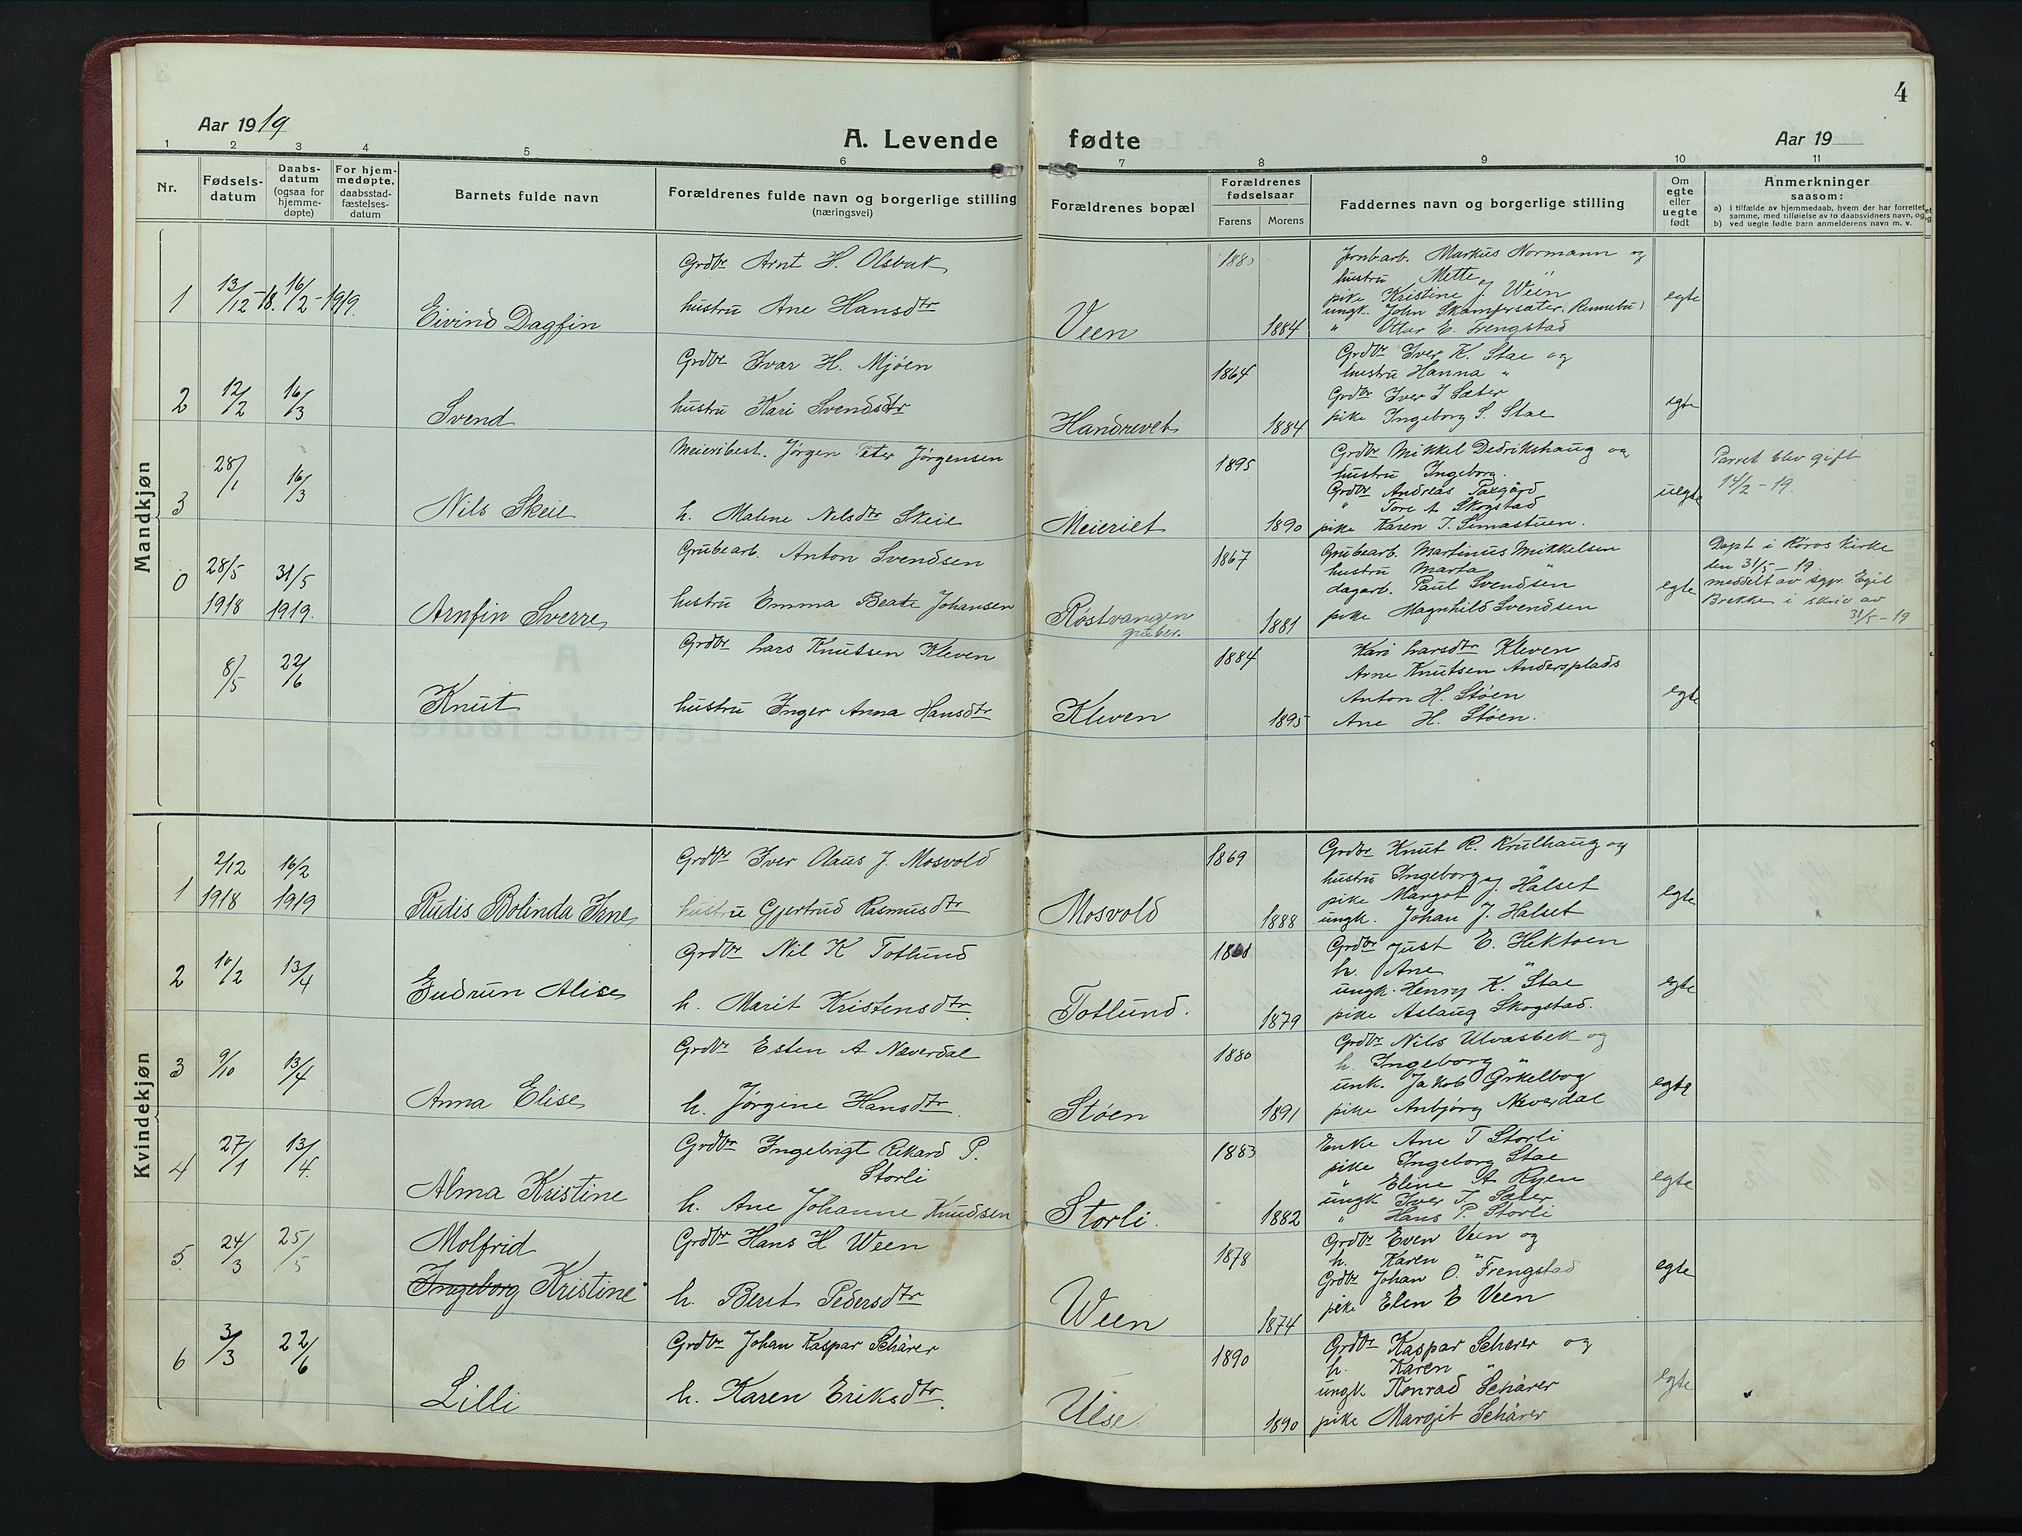 4
Aar 1919
A. Levende fødte
Aar 19
1 2 3 4 5 6 7 8 9 10 11
Nr.
Fødsels-
datum
Daabs-
datum
(ogsaa for
hjemme-
døpte)
For hjem-
medøpte,
daabsstad-
fæstelses-
datum
Barnets fulde navn
Forældrenes fulde navn og borgerlige stilling
(næringsvei)
Forældrenes bopæl
Forældrenes
fødselsaar
Farens Morens
Faddernes navn og borgerlige stilling
Om
egte
eller
uegte
født
Anmerkninger
saasom:
a) i tilfælde av hjemmedaab, hvem der har forrettet
samme, med tilføielse av to daabsvidners navn, og
b) ved uegte fødte barn anmelderens navn m. v.
Mandkjøn
1 13/12-18. 16/2-1919. Eivind Dagfin
Grdbr Arnt H. Olsbak
hustru Ane Hansdtr
Veen
1884
Jernbarb. Markus Normann og
hustru Mette "
pike Kristine J. Wein
ungk. John Skamfersæter (Rennebu)
" Olar E. Frengstad
egte
2 12/2 16/3 Svend
Grdbr Ivar H. Mjøen
hustru Kari Svendsdtr
Handrevet
1864 1884
Grdbr Iver K. Stae og
hustru Hanna "
Grdbr Iver I Sæter
pike Ingeborg S. Stae
egte
3 28/1 16/3 Nils Skeie
Meieribest. Jørgen Peter Jørgensen
h. Maline Nilsdtr Skeie
Meieriet
1895 1890
Grdbr Mikkel Dedrikshaug og
hustru Ingeborg.
Grdbr Andreas Taxgård
" Tore A Skogstad
pike Karen T. Simastuen.
uegte
Parret blev gift
14/2-19.
0 28/5 1918 31/5 1919. Arnfin Sverre
Grubearb. Anton Svendsen
hustru Emma Beate Johansen
Røstvangen
gruber.
1867 1881
Grubearb. Martinus Mikkelsen
hustru Marta "
dagarb. Paul Svendsen
pike Magnhild Svendsen
egte
Døpt i Røros Kirke
den 31/5-19.
meddelt av sgpr. Egil
Brekke i skriv av
31/5-19
8/5 22/6 Knut
Grdbr Lars Knutsen Kleven
hustru Inger Anna Hansdtr
Kleven
1884 1895
Kari Larsdtr Kleven
Arne Knutsen Andersplads
Anton H. Støen
Ane H. Støen.
egte
Kvindekjøn
1 2/12 1918 16/2 1919 Rudis Bolinda Irne
Grdbr Iver Olaus J. Mosvold
hustru Gjertrud Rasmusdtr
Mosvold
1869 1888
Grdbr Knut R. Krulhaug og
hustru Ingeborg "
pike Margot J. Halset
ungk. Johan J. Halset
egte
2 16/2 13/4 Gudrun Alise
Grdbr Nil K Totlund
h. Marit Kristensdtr.
Totlund.
1879
Grdbr Just E. Hektoen
h. Ane "
ungk. Henry K. Stae
pike Aslaug Skogstad.
egte
3 9/10 13/4 Anna Elise
Grdbr Esten A Næverdal
h. Jørgine Hansdtr.
Støen
1880 1891
Grdbr Nils Ulvasbek og
h. Ingeborg "
unk. Jakob Grkelbog
pike Anbjørg Neverdal
egte
4 27/1 13/4. Alma Kristine
Grdbr Ingebrigt Rikard P.
Storli
h. Ane Johanne Knudsen
Storli.
1883 1882
Enke Ane T Storli
pike Ingeborg Stae
" Eline A Ryen
ungk Iver T. Sæter
" Hans P. Storli
egte
5. 24/3 25/5 Molfrid
Ingeborg Kristine
Grdbr Hans H Ween
h. Berit Pedersdtr
Ween
1878 1874
Grdbr Even Veen og
h. Karen "
Grdbr Johan O. Frengstad
pike Elen E Veen
egte
6 3/3 22/6 Lilli
Grdbr Johan Kaspar Schärer
h. Karen Eriksdtr.
Ulse
1890 1890
Grdbr Kaspar Scherer og
h. Karen "
ungk. Konrad Schärer
pike Margit Schärer
egte